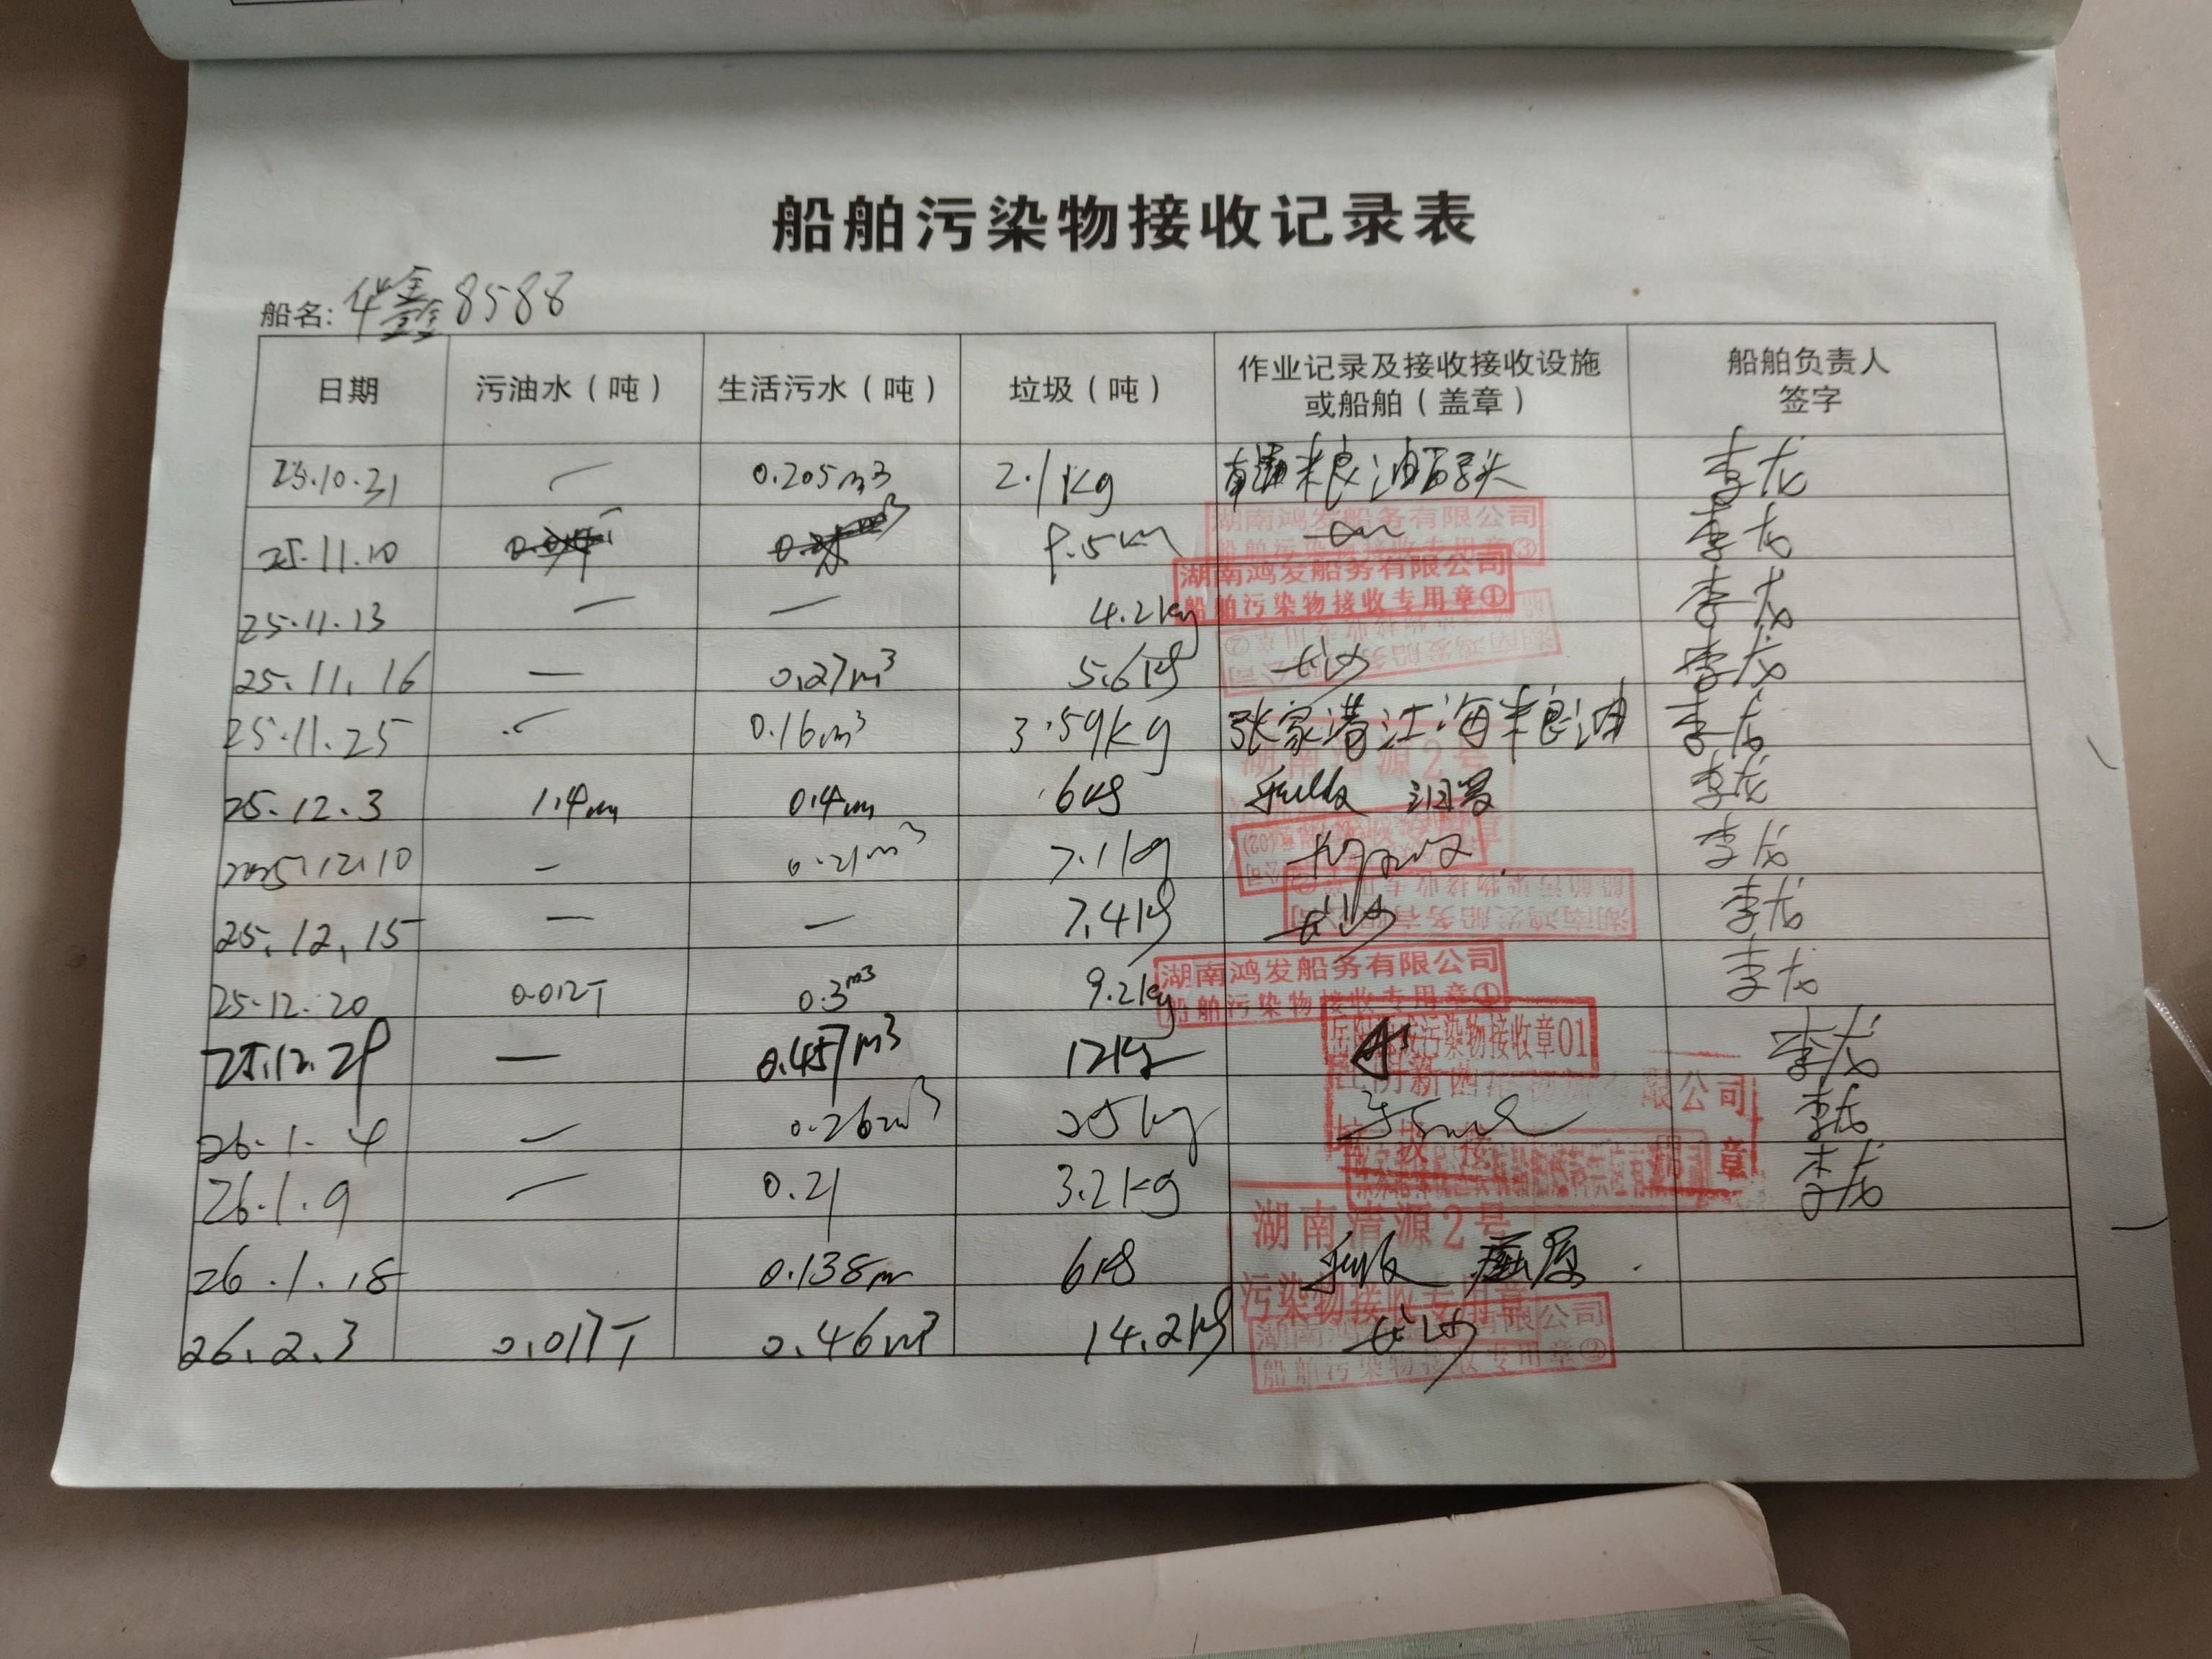 船舶污染物接收记录表
船名: 华鑫8588
日期 污油水（吨） 生活污水（吨） 垃圾（吨） 作业记录及接收接收设施或船舶（盖章） 船舶负责人签字
25.10.31 — 0.205m3 2.1kg 粮油码头 李龙
25.11.10 李龙
湖南鸿发船务有限公司
船舶污染物接收专用章③
25.11.13 — — 4.2kg 李龙
湖南鸿发船务有限公司
船舶污染物接收专用章①
25.11.16 — 0.27m³ 5.6kg 长沙 李龙
湖南鸿发船务有限公司
船舶污染物接收专用章②
25.11.25 — 0.16m³ 3.59kg 张家港江海粮油 李龙
湖南清源2号
25.12.3 1.4m 0.4m 6kg 李龙
2025.12.10 — 0.21m³ 7.1kg 李龙
25.12.15 — — 7.4kg 长沙 李龙
湖南鸿发船务有限公司
船舶污染物接收专用章②
25.12.20 0.012T 0.3m3 9.2kg 李龙
湖南鸿发船务有限公司
船舶污染物接收专用章①
25.12.29 — 0.457m3 12kg 李龙
污染物接收章01
26.1.4 — 0.26m3 25kg 李龙
限公司
章
26.1.9 — 0.21 3.2kg 李龙
湖南清源2号
污染物接收专用章
26.1.18 0.138m 6kg
26.2.3 0.017T 0.46m3 14.2kg 长沙
湖南鸿发船务有限公司
船舶污染物接收专用章②